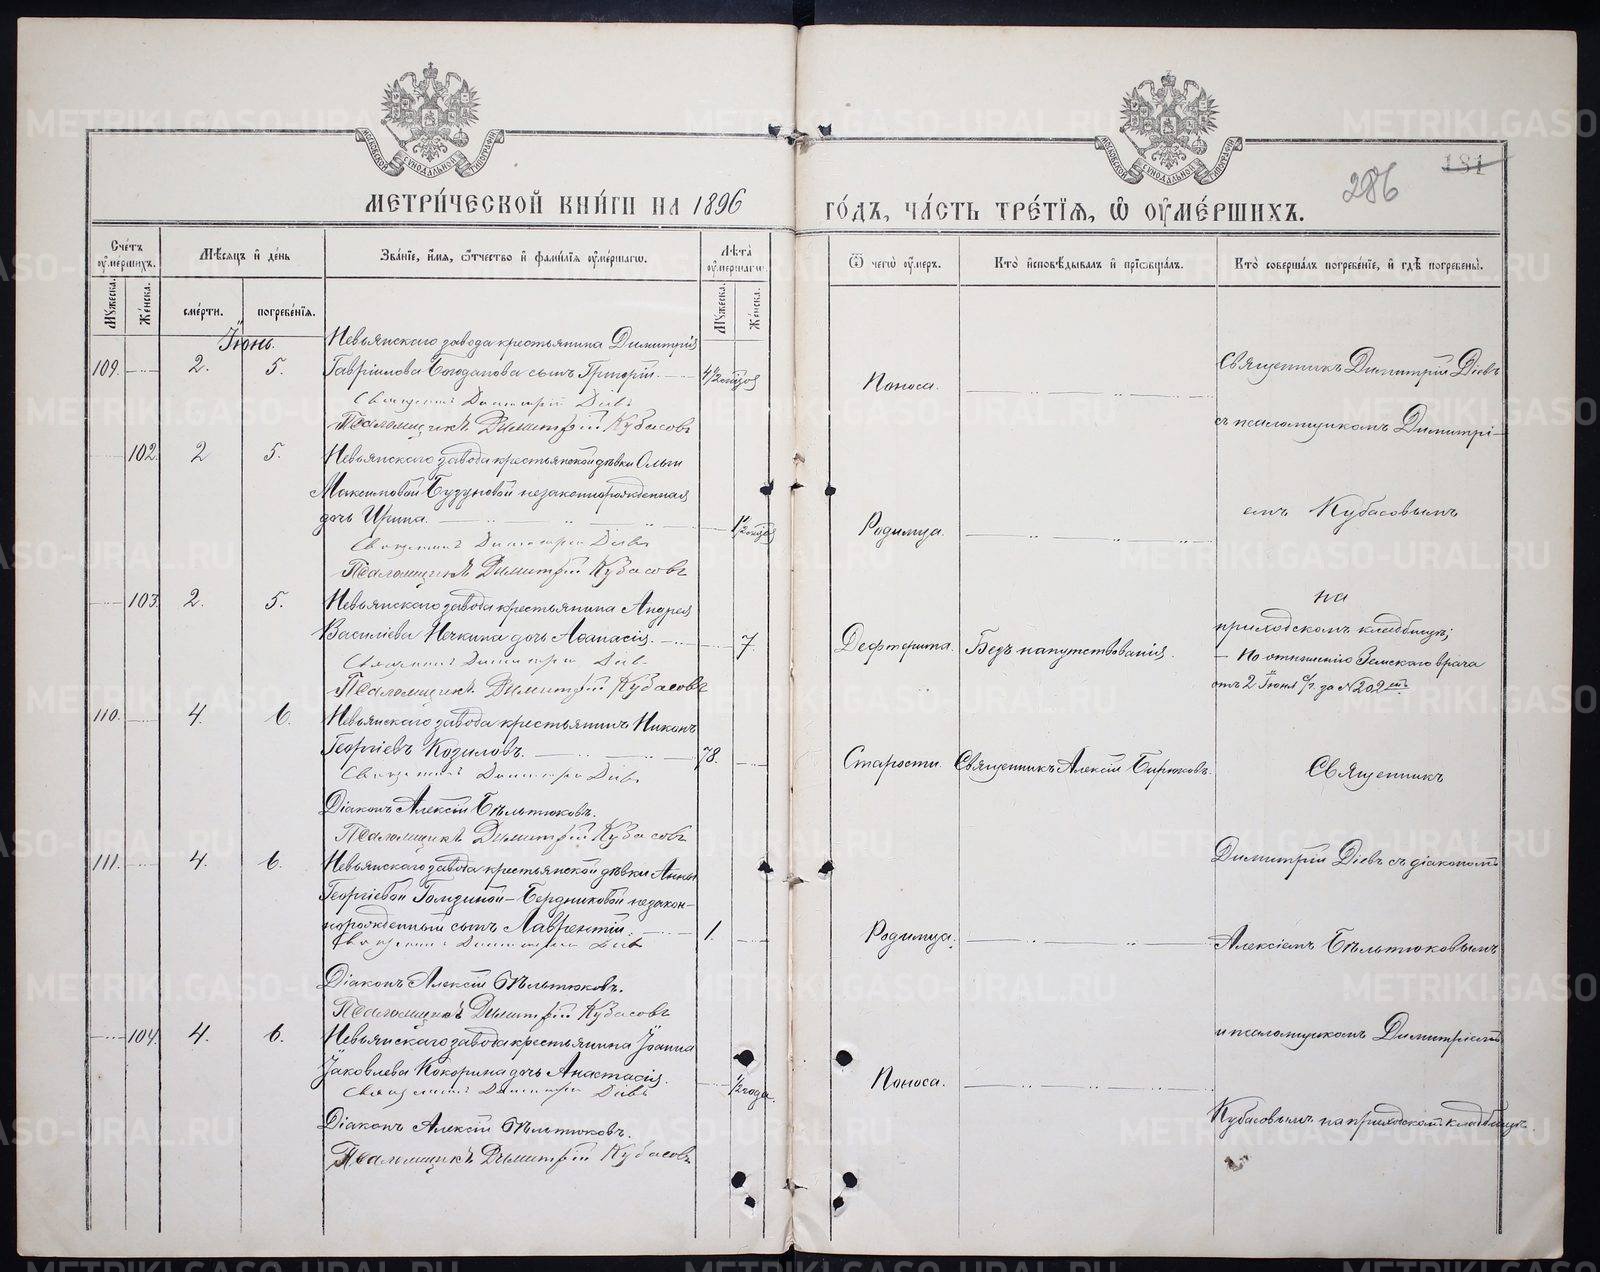 МОСКОВСКОЙ СУНОДАЛЬНОЙ ТИПОГРАФІИ
МЕТРИ́ЧЕСКОЙ КНИ́ГИ НА 1896
Сче́тъ ᲂу҆ме́ршихъ.
Мѣ́сяцъ и҆ де́нь
Зва́нїе, и҆́мѧ, ѻ҆́тчество и҆ фами́лїѧ ᲂу҆ме́ршагѡ.
Лѣ́та ᲂу҆ме́ршагѡ.
Му́жеска.
Же́нска.
сме́рти.
погребе́нїѧ.
Му́жеска.
Же́нска.
Іюнь.
Невьянскаго завода крестьянина Димитрія
109. 2. 5. Гавріилова Богданова сынъ Григорій. 4 1/2 года
Священникъ Димитрій Діевъ
Псаломщикъ Димитрій Кубасовъ
102. 2 5. Невьянскаго завода крестьянской дѣвки Ольги
Максимовой Будуновой незаконнорожденная
дочь Ирина.
Священникъ Димитрій Діевъ
Псаломщикъ Димитрій Кубасовъ
103. 2. 5. Невьянскаго завода крестьянина Андрея
Василіева Нечкина дочь Аѳанасія. 7.
Священникъ Димитрій Діевъ
Псаломщикъ Димитрій Кубасовъ
110. 4. 6. Невьянскаго завода крестьянинъ Никонъ
Георгіевъ Козиловъ. 78.
Священникъ Димитрій Діевъ
Діаконъ Алексій Бѣльтюковъ.
Псаломщикъ Димитрій Кубасовъ
111. 4. 6. Невьянскаго завода крестьянской дѣвки Анны
Георгіевой Гомзиной-Бердниковой незакон-
норожденный сынъ Лаврентій. 1.
Священникъ Димитрій Діевъ
Діаконъ Алексій Бѣльтюковъ.
Псаломщикъ Димитрій Кубасовъ
104. 4. 6. Невьянскаго завода крестьянина Іоанна
Іаковлева Кокорина дочь Анастасія. 1/2 года.
Священникъ Димитрій Діевъ
Діаконъ Алексій Бѣльтюковъ.
Псаломщикъ Димитрій Кубасовъ
МОСКОВСКОЙ СУНОДАЛЬНОЙ ТИПОГРАФІИ
181
286
ГО́ДЪ, ЧА́СТЬ ТРЕ́ТЇѦ, Ѡ҆ ОУ҆МЕ́РШИХЪ.
Ѿ чегѡ̀ ᲂу҆́меръ.
Кто̀ и҆сповѣ́дывалъ и҆ прїѡбща́лъ.
Кто̀ соверша́лъ погребе́нїе, и҆ гдѣ̀ погребены̀.
Священникъ Димитрій Діевъ
Поноса.
съ псаломщикомъ Димитрі-
емъ Кубасовымъ
Родимца.
на
приходскомъ кладбищѣ;
Дефтерита. Безъ напутствованія.
– По отношенію Земскаго врача
отъ 2 Іюня с/г. за № 202мъ
Старости. Священникъ Алексій Бирюковъ.
Священникъ
Димитрій Діевъ съ діакономъ
Родимца.
Алексіемъ Бѣльтюковымъ
и псаломщикомъ Димитріемъ
Поноса.
Кубасовымъ на приходскомъ кладбищѣ.
METRIKI.GASO-URAL.RU